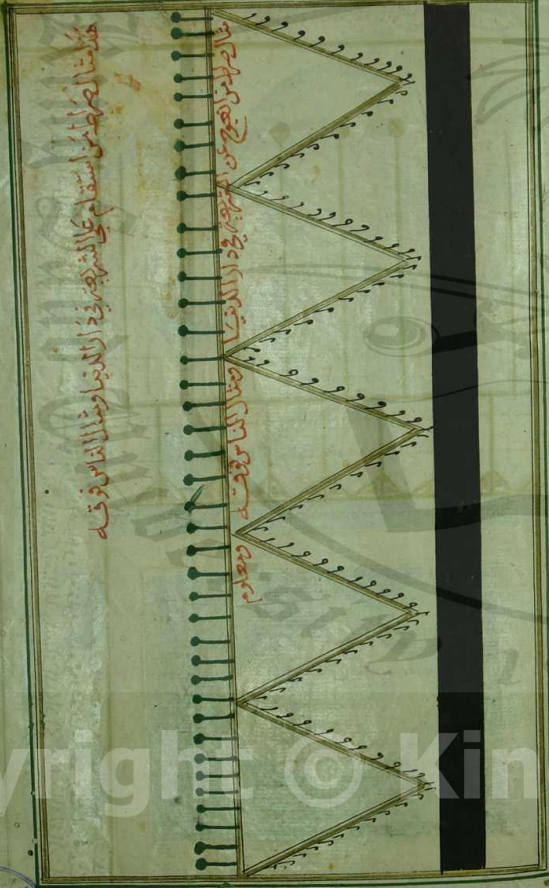 هذا مثال الصراط من استقام على الشريعة في دار الدنيا ومثال الناس فوقه
مثال صراط من اعوج عن الشريعة في دار الدنيا ومثال الناس فوقه
yright © Kin